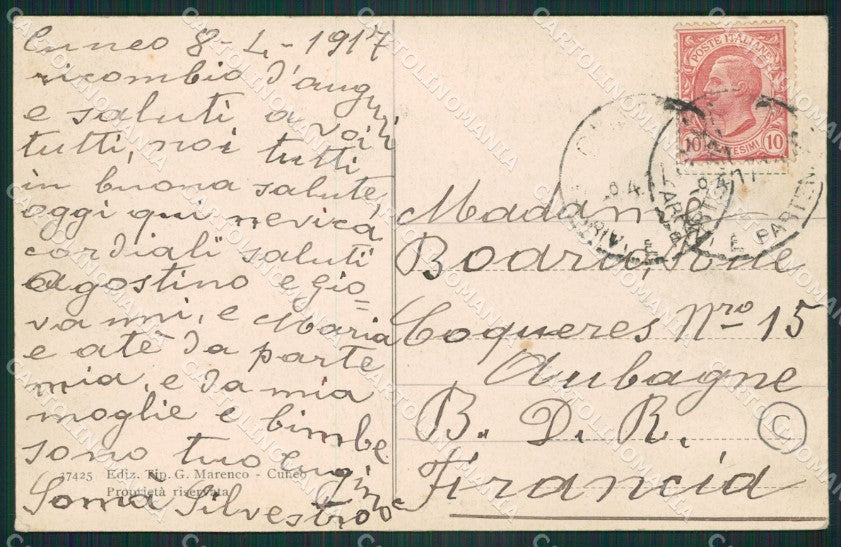 Cuneo 8-4-1917
ricombio d'auguri
e saluti a voi
tutti, noi tutti
in buona salute,
oggi qui nevica
cordiali saluti
Agostino e Gio=
vanni, e Maria
e atè da parte
mia, e da mia
moglie e bimbe
sono tuo cugino
Soma Silvestro
17425 Ediz. Tip. G. Marenco - Cuneo
Proprietà riservata
POSTE ITALIANE
10 CENTESIMI 10
Madame
Coqueres Nro 15
Aubagne
B. D. R.
Firancia
C
CARTOLINOMANIA